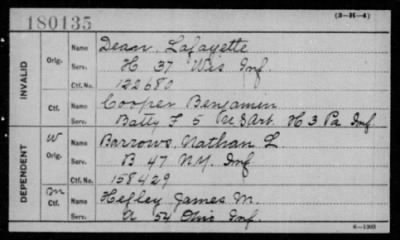 180135 (3-H-4)
INVALID
Orig. Name Dean, Lafayette
Serv. H 37 Wis Inf.
Ctf. No. 122680
Ctf. Name Cooper Benjamin
Serv. Batty F 5 U S Art. H 3 Pa Inf
DEPENDENT
W Orig. Name Barrows, Nathan L
Serv. B 47 N.Y. Inf
Ctf. No. 158429
M Ctf. Name Hefley James M.
Serv. A 54 Ohio Inf.
6-1903